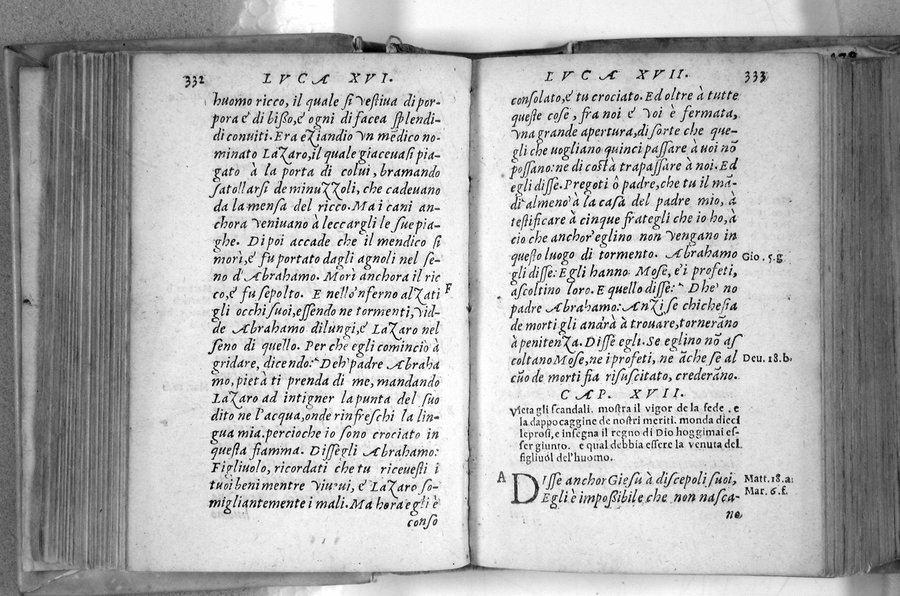 332
LVCA XVI.
huomo ricco, il quale si vestiua di por-
pora e' di bisso, e ogni dì facea splendi-
di conuiti. Era eziandio vn medico no-
minato Lazaro, il quale giaceuasi pia-
gato à la porta di colui, bramando
satollarsi de minuzzoli, che cadeuano
da la mensa del ricco. Ma i cani an-
chora veniuano à leccargli le sue pia-
ghe. Di poi accade che il mendico si
morì, e' fu portato dagli agnoli nel se-
no d'Abrahamo. Morì anchora il ric
co, e' fu sepolto. E nello'nferno alzati
F
gli occhi suoi, essendo ne tormenti, vid-
de Abrahamo dilungi, e' Lazaro nel
seno di quello. Per che egli comincio à
gridare, dicendo: Deh' padre Abraha
mo, pietà ti prenda di me, mandando
Lazaro ad intigner la punta del suo
dito ne l'acqua, onde rinfreschi la lin-
gua mia. percioche io sono crociato in
questa fiamma. Dissegli Abrahamo:
Figliuolo, ricordati che tu riceuesti i
tuoi beni mentre viuui, e' Lazaro so-
migliantemente i mali. Ma hora egli è
conso
LVCA XVII.
333
consolato, e' tu crociato. Ed oltre à tutte
queste cose, fra noi e' voi è fermata,
vna grande apertura, di sorte che que-
gli che uogliano quinci passare à uoi nō
possano: ne di costà trapassare à noi. Ed
egli disse. Pregoti ô padre, che tu il mā-
di almeno à la casa del padre mio, à
testificare à cinque frategli che io ho, à
cio che anchor' eglino non vengano in
questo luogo di tormento. Abrahamo
Gio. 5. g.
gli disse: Egli hanno Mose, e' i profeti,
ascoltino loro. E quello disse: Dhe' no
padre Abrahamo: Anzi se chichesia
de morti gli andrà à trouare, tornerāno
à penitenza. Disse egli. Se eglino nō as
coltano Mose, ne i profeti, ne āche se al
Deu. 18. b.
cūo de morti fia risuscitato, crederāno.
CAP. XVII.
Vieta gli scandali. mostra il vigor de la fede. e
la dappocaggine de nostri meriti. monda dieci
leprosi, e insegna il regno di Dio hoggimai es-
ser giunto. e qual debbia essere la venuta del
figliuol de l'huomo.
A
Disse anchor Giesu à discepoli suoi,
Matt. 18. a:
Egli è impossibile che non nasca-
Mar. 6. f.
no